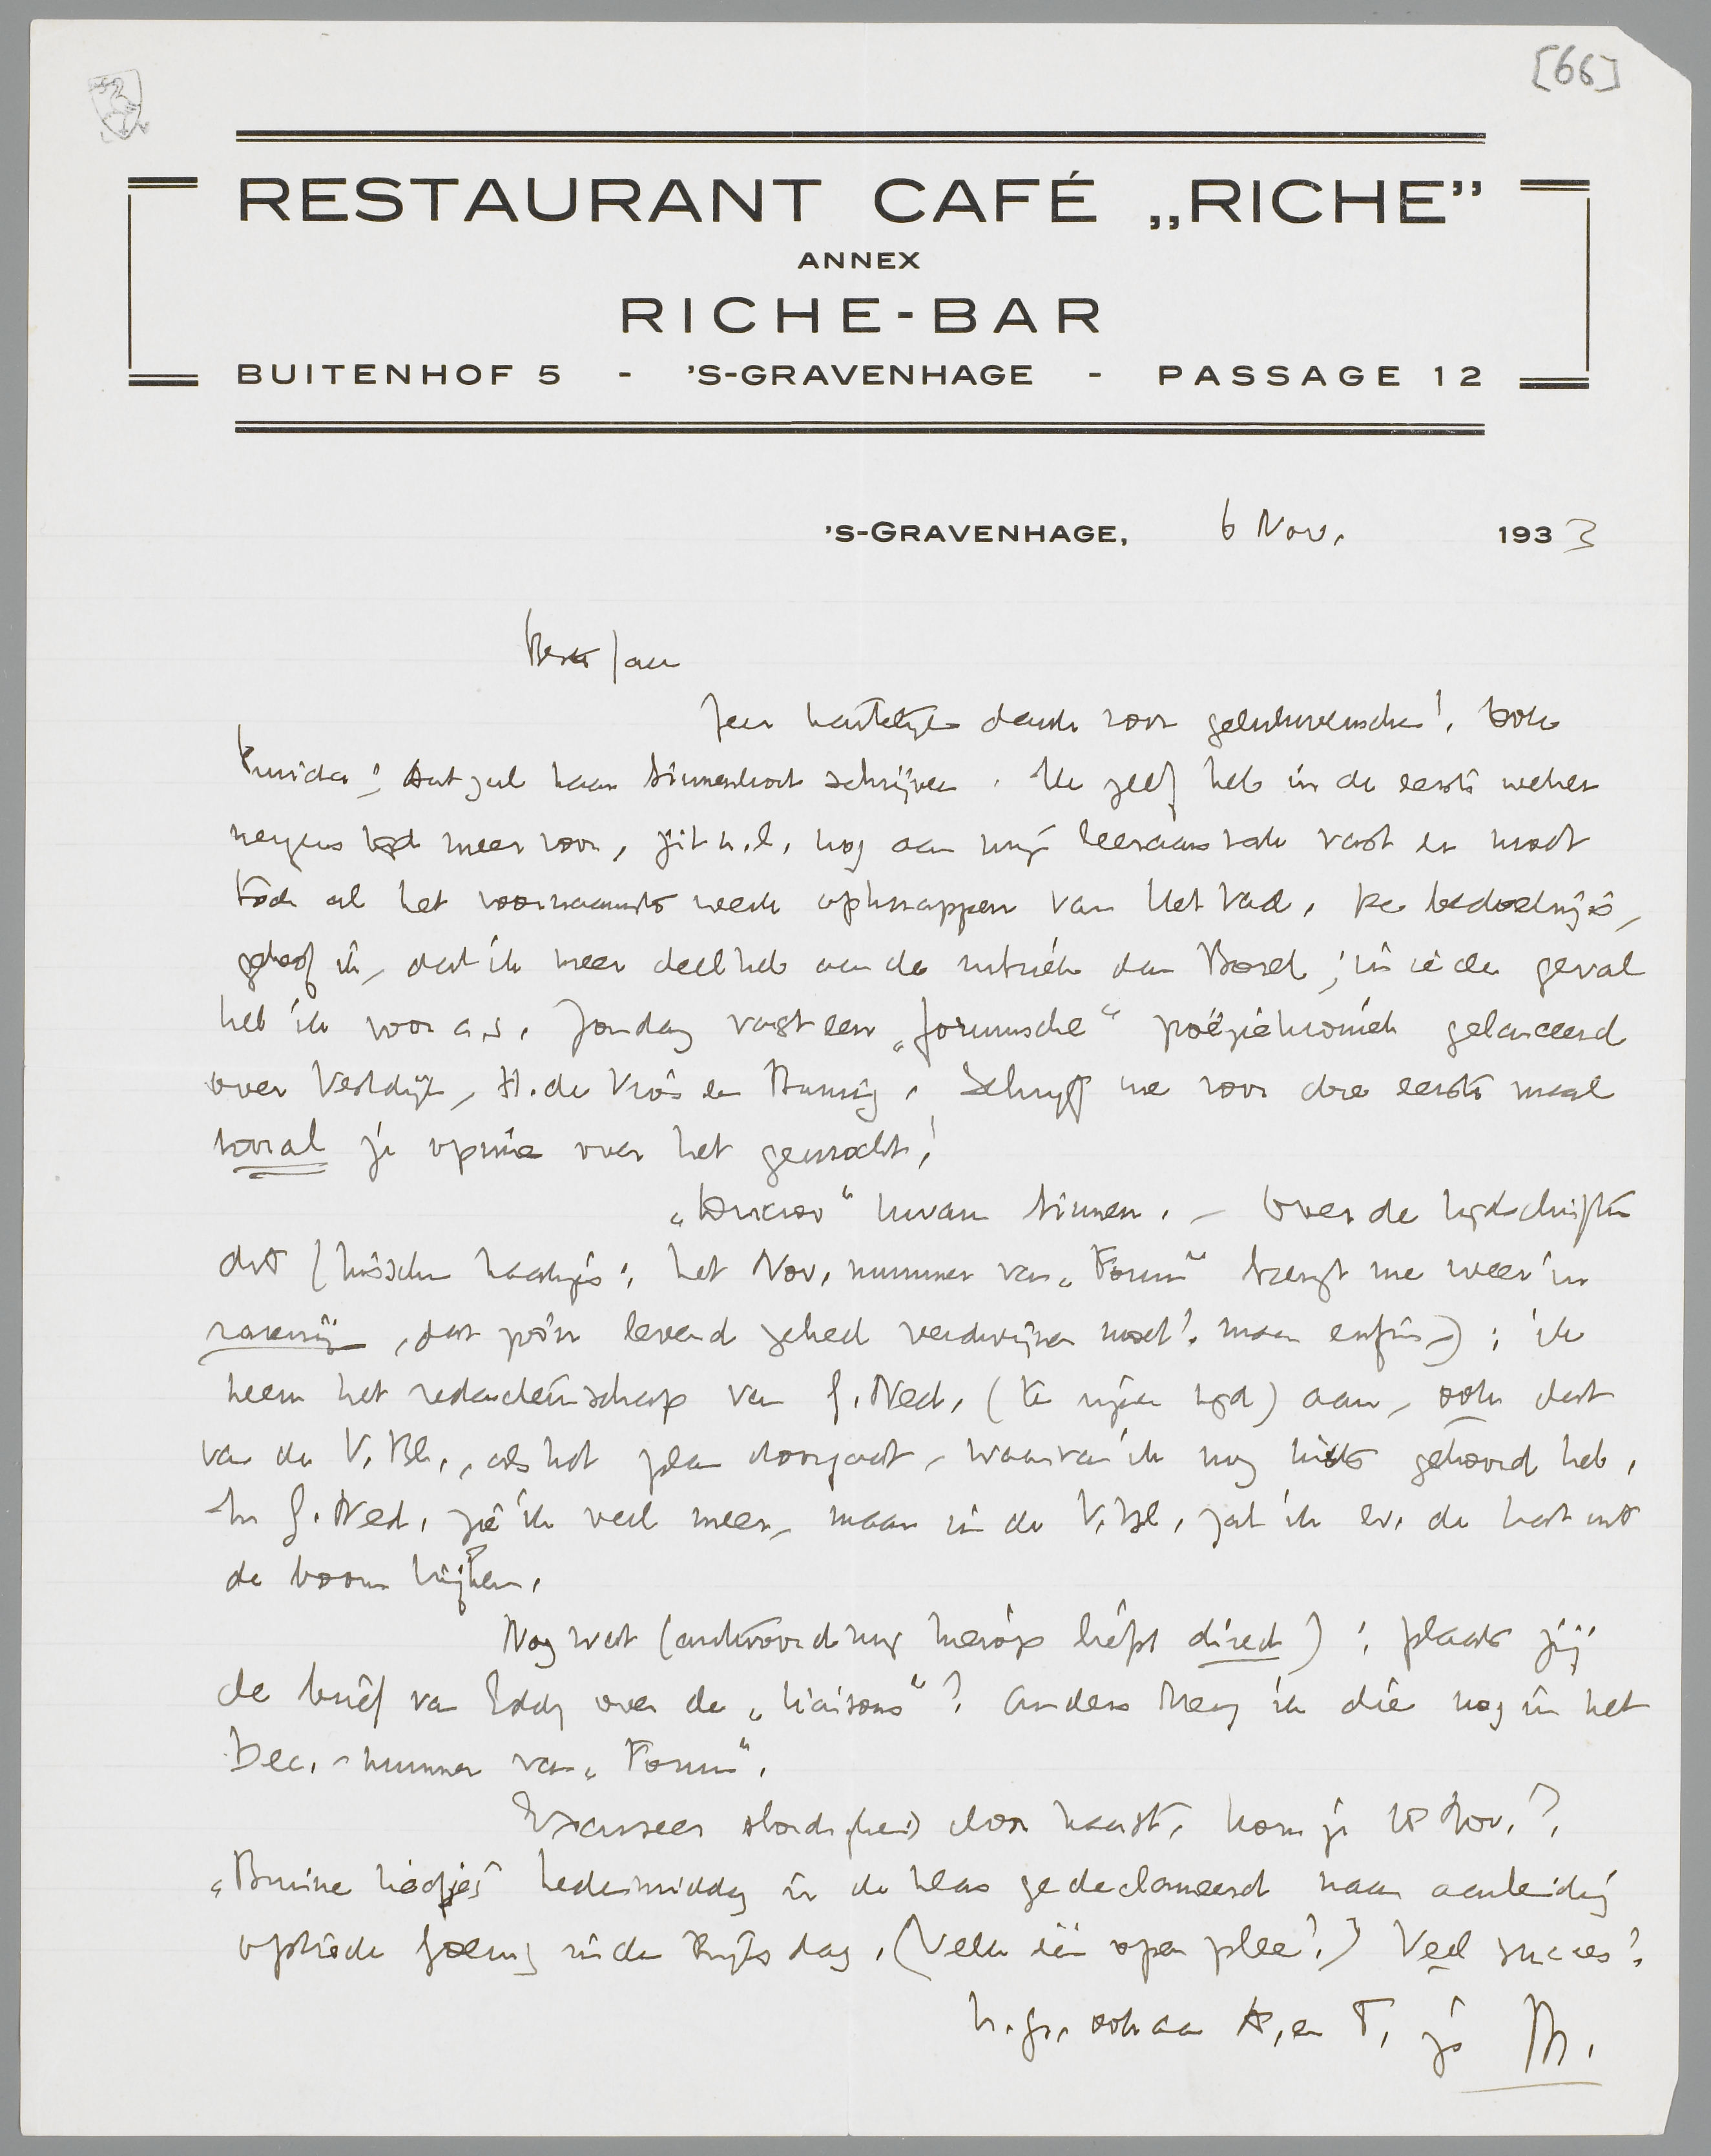 [66]
RESTAURANT CAFÉ „RICHE”
ANNEX
RICHE-BAR
BUITENHOF 5 - 'S-GRAVENHAGE - PASSAGE 12
'S-GRAVENHAGE, 6 Nov. 1933
Beste Jan
Zeer hartelijk dank voor gelukwenschen! Ook
Truida! Ant zal haar binnenkort schrijven. Ik zelf heb in de eerste weken
nergens tijd meer voor, zit n.l. nog aan mijn leeraarstaak vast en moet
toch al het voornaamste werk opknappen van Het Vad. De bedoeling is,
geloof ik, dat ik meer deel heb aan de rubriek dan Borel; in ieder geval
heb ik voor a.s. Zondag vast een „forumsche“ poëziekroniek gelanceerd
over Vestdijk, H. de Vries en Buning. Schrijf me voor die eerste maal
vooral je opinie over het gewrocht!
kwam binnen. - Over de tijdschriften
dit (tusschen haakjes: het Nov. nummer van „Forum“ brengt me weer in
razernij, dat levend geheel verdwijnen moet! maar enfin -): ik
neem het redacteurschap van G. Ned. (te zijner tijd) aan, ook dat
van de V. Bl., als het plan doorgaat, waarvan ik nog niets gehoord heb.
In G. Ned. zie ik veel meer, maar in de V. Bl. zal ik ev. de kat uit
de boom kijken.
Nog wat (antwoord mij hierop liefst direct): plaats jij
de brief van Eddy over de „liaisons“? Anders breng ik die nog in het
Dec.-nummer van „Forum“.
Excuseer slordigheid door haast. Kom je 18 Nov.?
„Bruine liedjes“ hedenmiddag in de klas gedeclameerd naar aanleiding
optreden Goering in de Rijksdag. (Velen een open plee!) Veel succes!
h. gr. ook aan A. en T. je M.